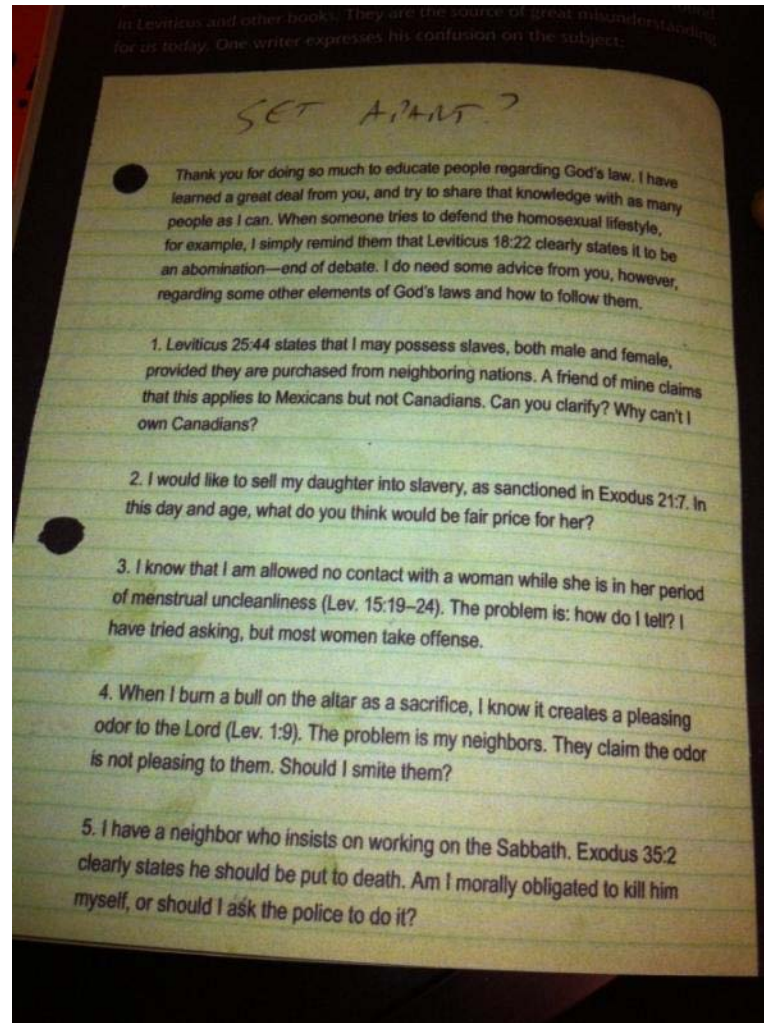 in Leviticus and other books. They are the source of great misunderstanding
for us today. One writer expresses his confusion on the subject:
SET APART?
Thank you for doing so much to educate people regarding God's law. I have
learned a great deal from you, and try to share that knowledge with as many
people as I can. When someone tries to defend the homosexual lifestyle,
for example, I simply remind them that Leviticus 18:22 clearly states it to be
an abomination—end of debate. I do need some advice from you, however,
regarding some other elements of God's laws and how to follow them.
1. Leviticus 25:44 states that I may possess slaves, both male and female,
provided they are purchased from neighboring nations. A friend of mine claims
that this applies to Mexicans but not Canadians. Can you clarify? Why can't I
own Canadians?
2. I would like to sell my daughter into slavery, as sanctioned in Exodus 21:7. In
this day and age, what do you think would be fair price for her?
3. I know that I am allowed no contact with a woman while she is in her period
of menstrual uncleanliness (Lev. 15:19–24). The problem is: how do I tell? I
have tried asking, but most women take offense.
4. When I burn a bull on the altar as a sacrifice, I know it creates a pleasing
odor to the Lord (Lev. 1:9). The problem is my neighbors. They claim the odor
is not pleasing to them. Should I smite them?
5. I have a neighbor who insists on working on the Sabbath. Exodus 35:2
clearly states he should be put to death. Am I morally obligated to kill him
myself, or should I ask the police to do it?